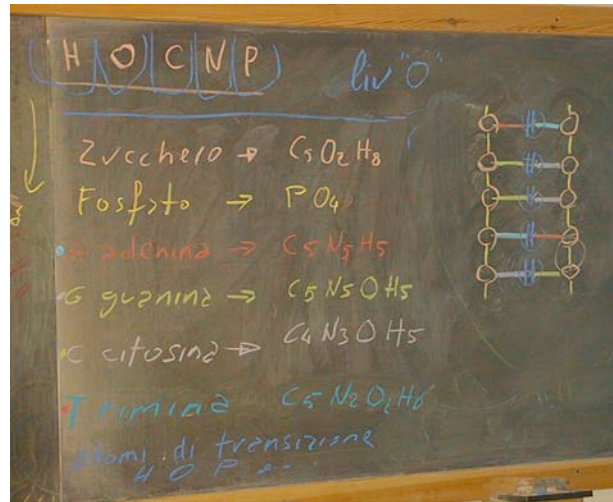 H O C N P
liv "O"
Zucchero → C5O2H8
Fosfato → PO4
A adenina → C5N5H5
G guanina → C5N5OH5
C citosina → C4N3OH5
T timina C5N2O2H6
Atomi di transizione
H O P